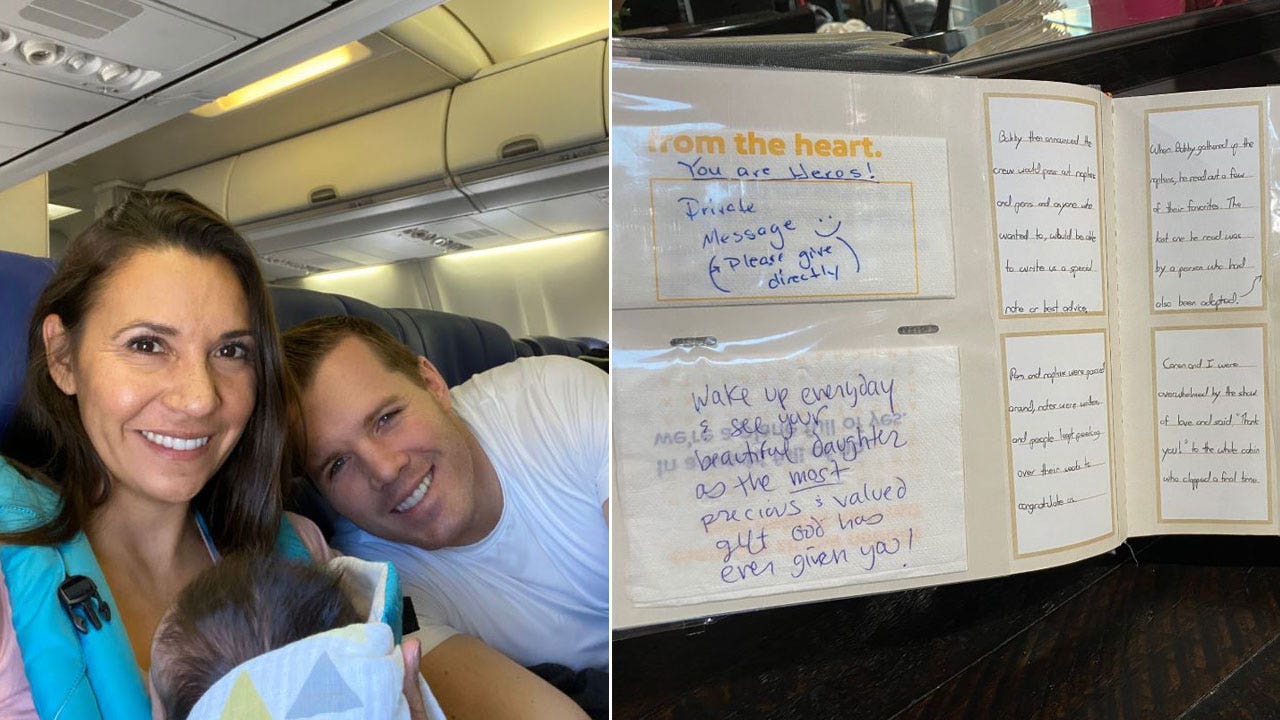 from the heart.
You are Heros!
Private
Message
(Please give
directly)
Wake up everyday
& see your
beautiful daughter
as the most
precious & valued
gift God has
ever given you!
we're a
full of yes.
in a
Bobby then announced the
crew would pass out napkins
and pens and anyone who
wanted to, would be able
to write us a special
note or best advice.
Pens and napkins were passed
around, notes were written,
and people kept peeking
over their seats to
congratulate us.
When Bobby gathered up the
napkins, he read out a few
of their favorites. The
last one he read was
by a person who had
also been adopted.
Caren and I were
overwhelmed by the show
of love and said "Thank
you!" to the whole cabin
who clapped a final time.